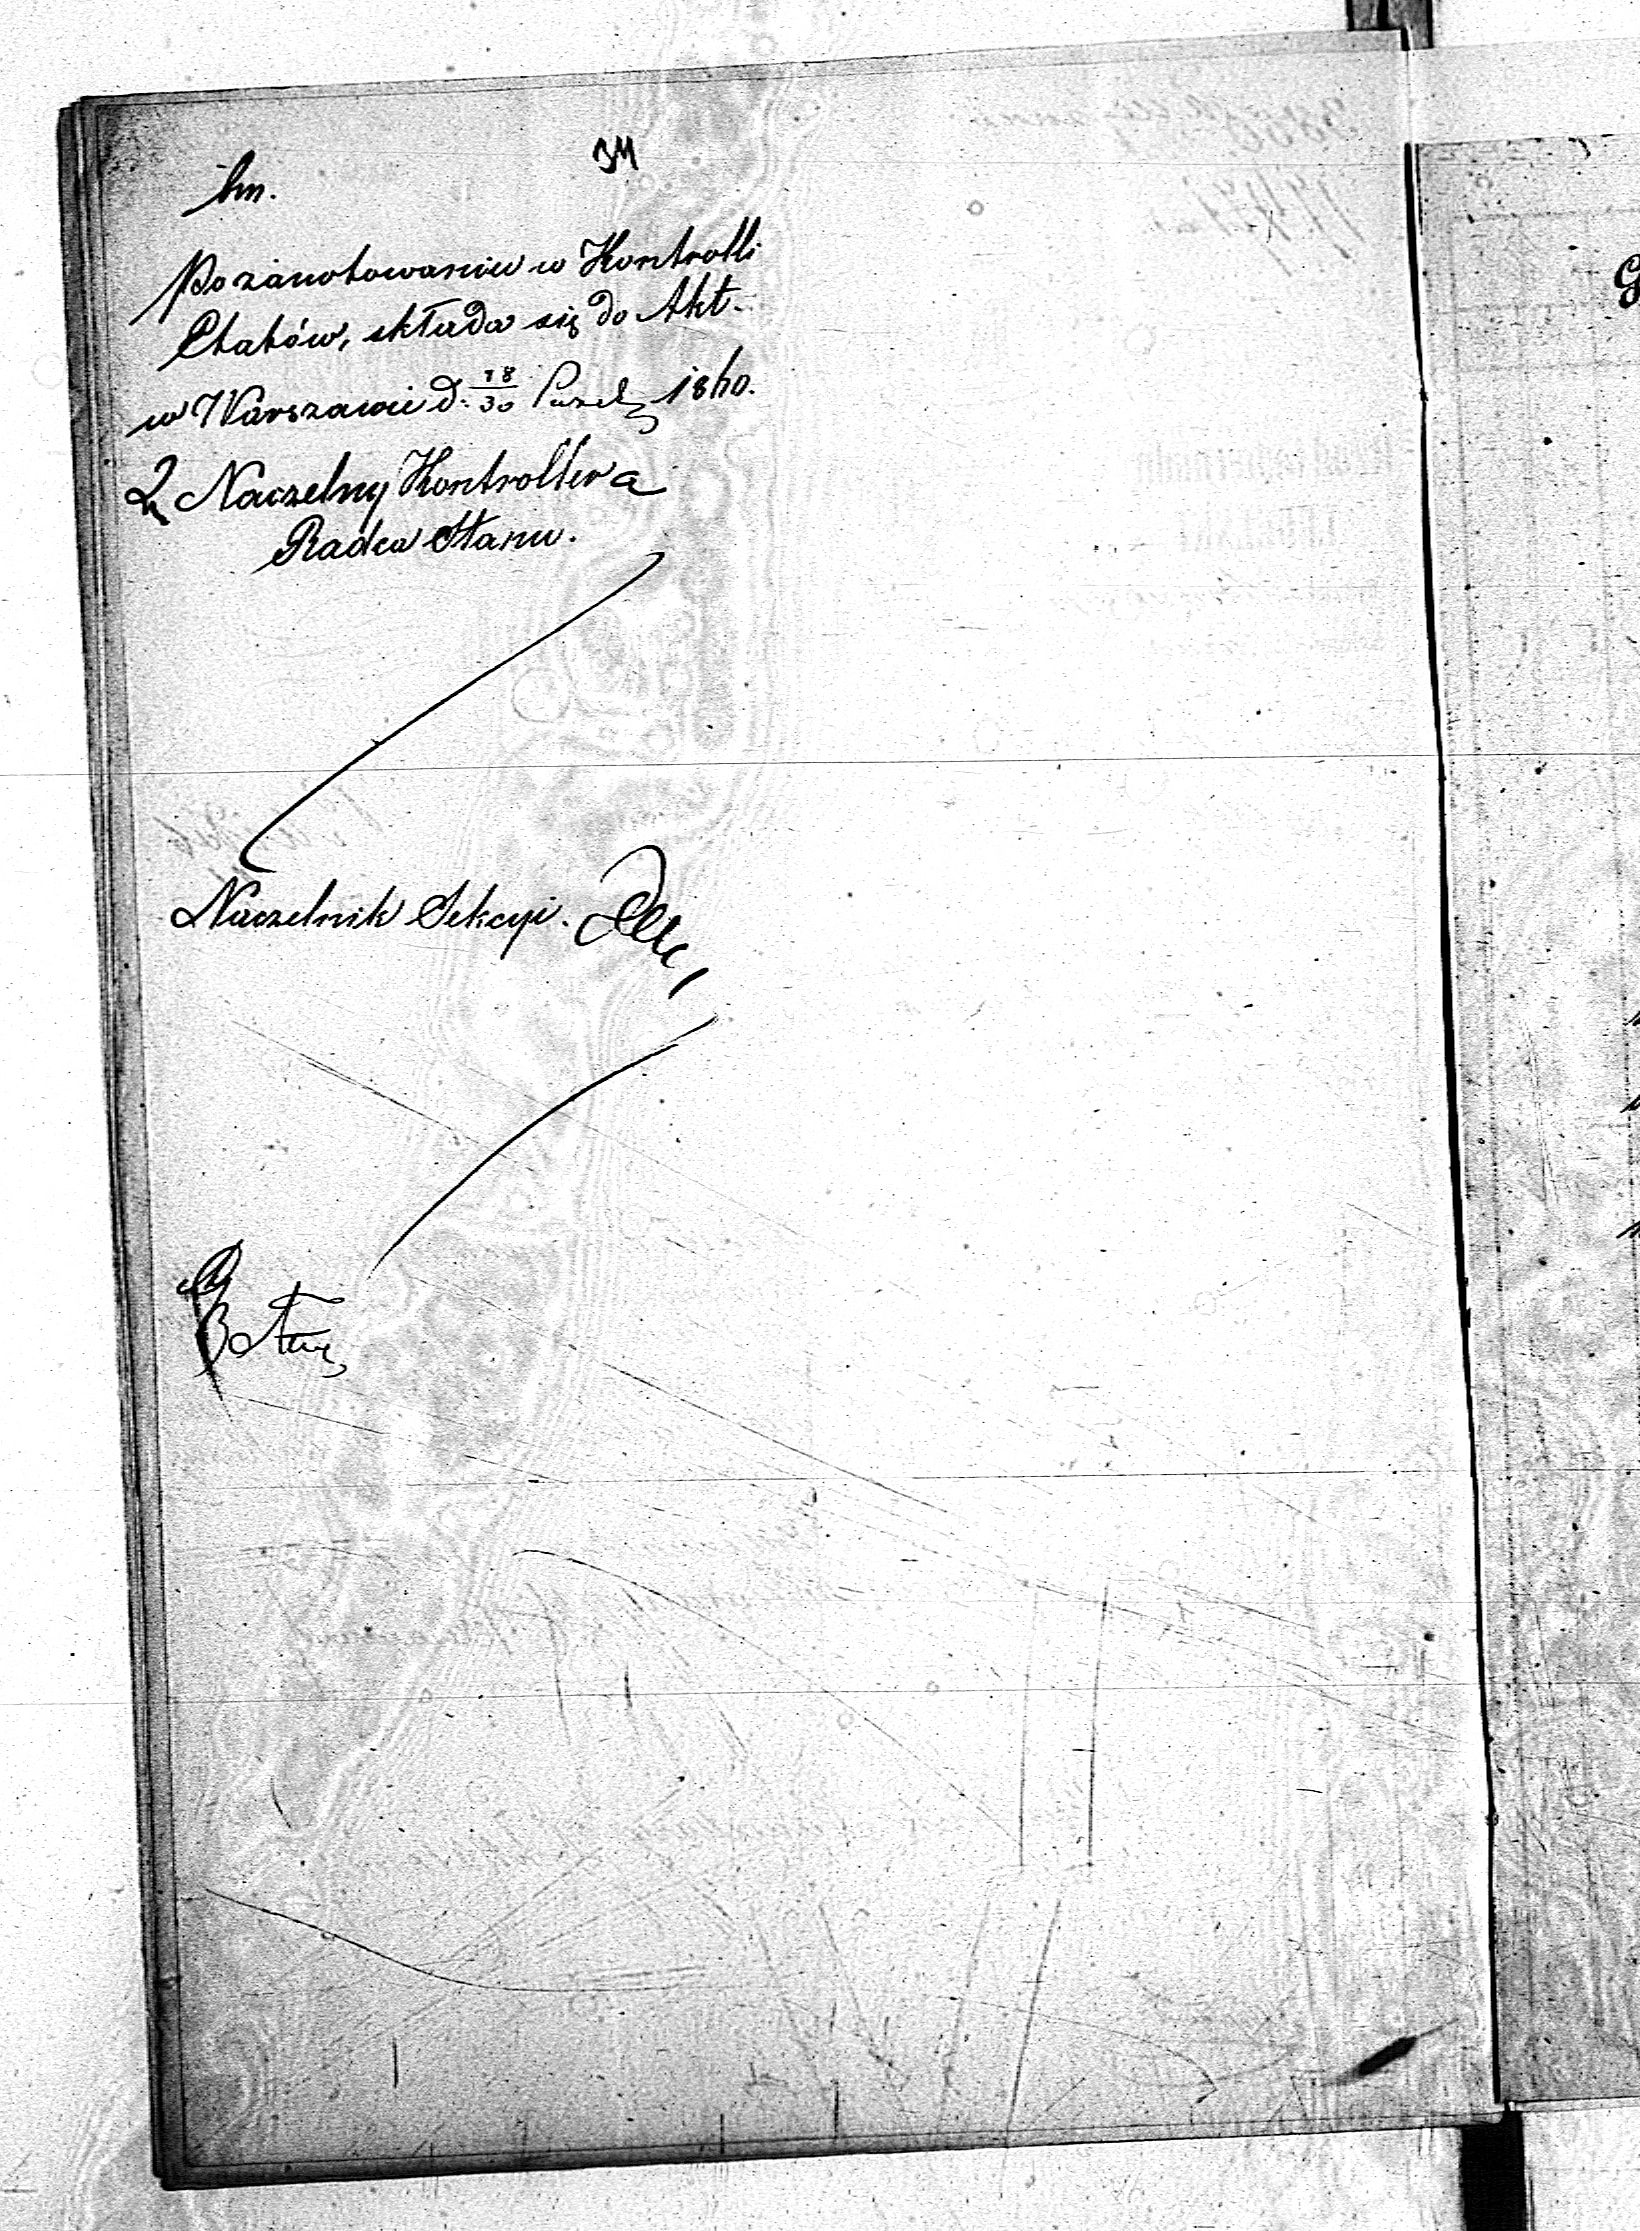 34
bm.
Po zanotowaniu w Kontrolli
Etatów, składa się do Akt.
w Warszawie d. 18/30 Paźdz 1860.
Naczelny Kontroller a
Radca Stanu.
Naczelnik Sekcyi.